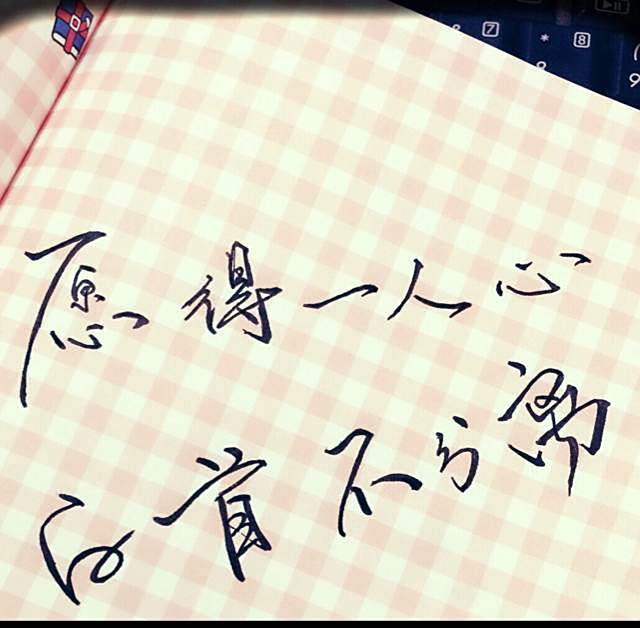 7 * 8
9
愿得一人心
白首不分离